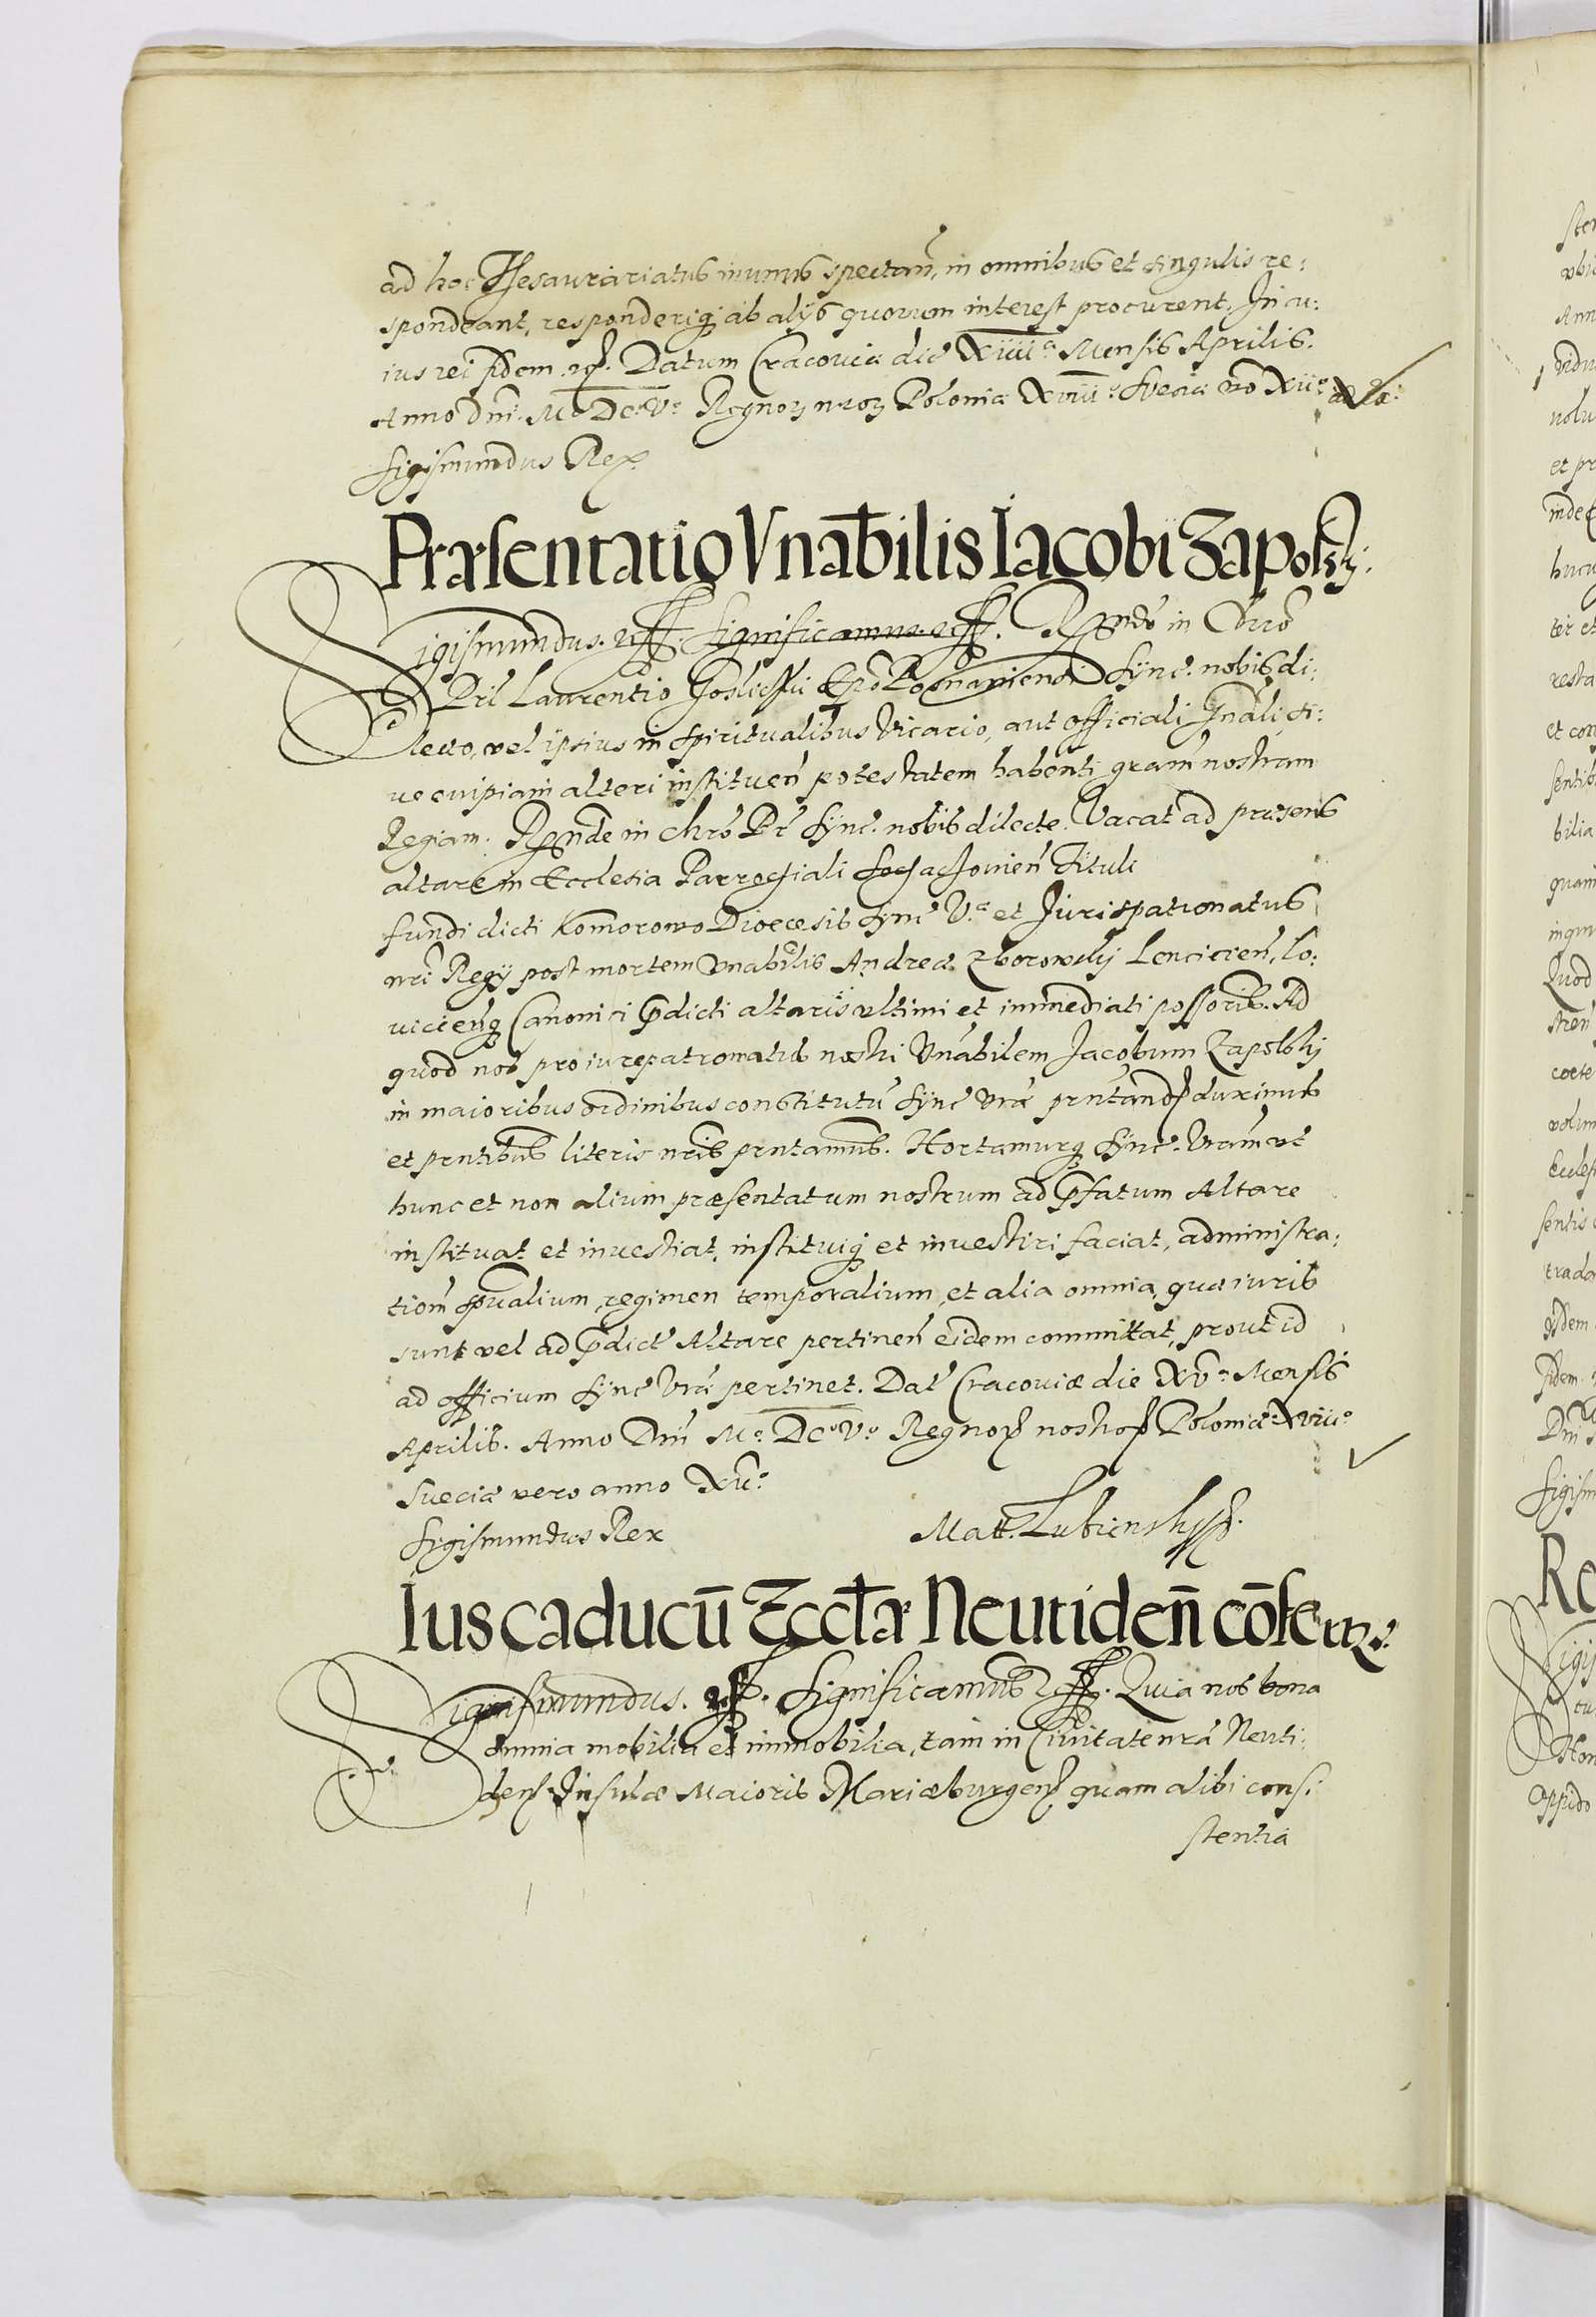 ad hoc Thesaurariatus munus spectań, in omnibus et singulis re:
spondeant, responderiq; ab alijs quorum interest procurent. In cu:
ius rei fidem. etc. Datum Cracoviæ die XIIIIa Mensis Aprilis.
Anno Dnī. Mo. DCo. Vo. Regnoꝝ nroꝝ Poloniæ XVIIIo. Sueciæ vō XIIo.
Sigismundus Rex
Præsentatio Vnabilis Iacobi Zapolsky.
Sigismundus. etc. Significamus. etc. Rndō in Chrō
Pri Laurentio Goslicski Epō Posnaniensi Sync. nobis di:
lecto, vel ipsius in spiritualibus Vicario, aut officiali Gnāli, si:
ue cuipiam alteri instituen̄ potestatem habenti gram̄ nostram
Regiam. Rnde in Chrō Pr̄ Sync. nobis dilecte. Vacat ad præsens
altare in Ecclesia Parrochiali Sochachouien̄ Tituli
fundi dicti Komorowo Dioecesis Sync Væ et Jurispatronatus
nrī Regÿ post mortem Vnabilis Andreæ Zborowskÿ Lencicien̄, Lo:
uicien̄q; Canonici p̄dicti altaris vltimi et immediati possoris. Ad
quod nos pro iurepatronatus nostri Vnabilem Jacobum Zapolskÿ
in maioribus ordinibus constitutū Sync Vræ prntand̄ duximus
et prntibus literis nris prntamus. Hortamurq; Sync. Vram̄ vt
hunc et non alium præsentatum nostrum ad p̄fatum Altare
instituat et inuestiat, instituiq; et inuestiri faciat, administra:
tiōm spūalium, regimen temporalium, et alia omnia, quæ iuris
sunt vel ad p̄dict̄ Altare pertinen̄ eidem committat, prout id
ad officium Sync Vræ pertinet. Dat̄ Cracouiæ die XVa Mensis
Aprilis. Anno Dnī Mo. DCo. Vo. Regnoꝝ nostroꝝ Poloniæ XVIIIo
Sueciæ vero anno XIIo.
Sigismundus Rex Matt. Lubienskÿ
Ius caducū Ecclæ Neutiden̄ cōfertur.
Sigismundus. etc. Significamus etc. Quia nos bona
omnia mobilia et immobilia, tam in Ciuitate nrā Neuti:
dens. Insulæ Maioris Mariæburgens quam alibi consi
stentia